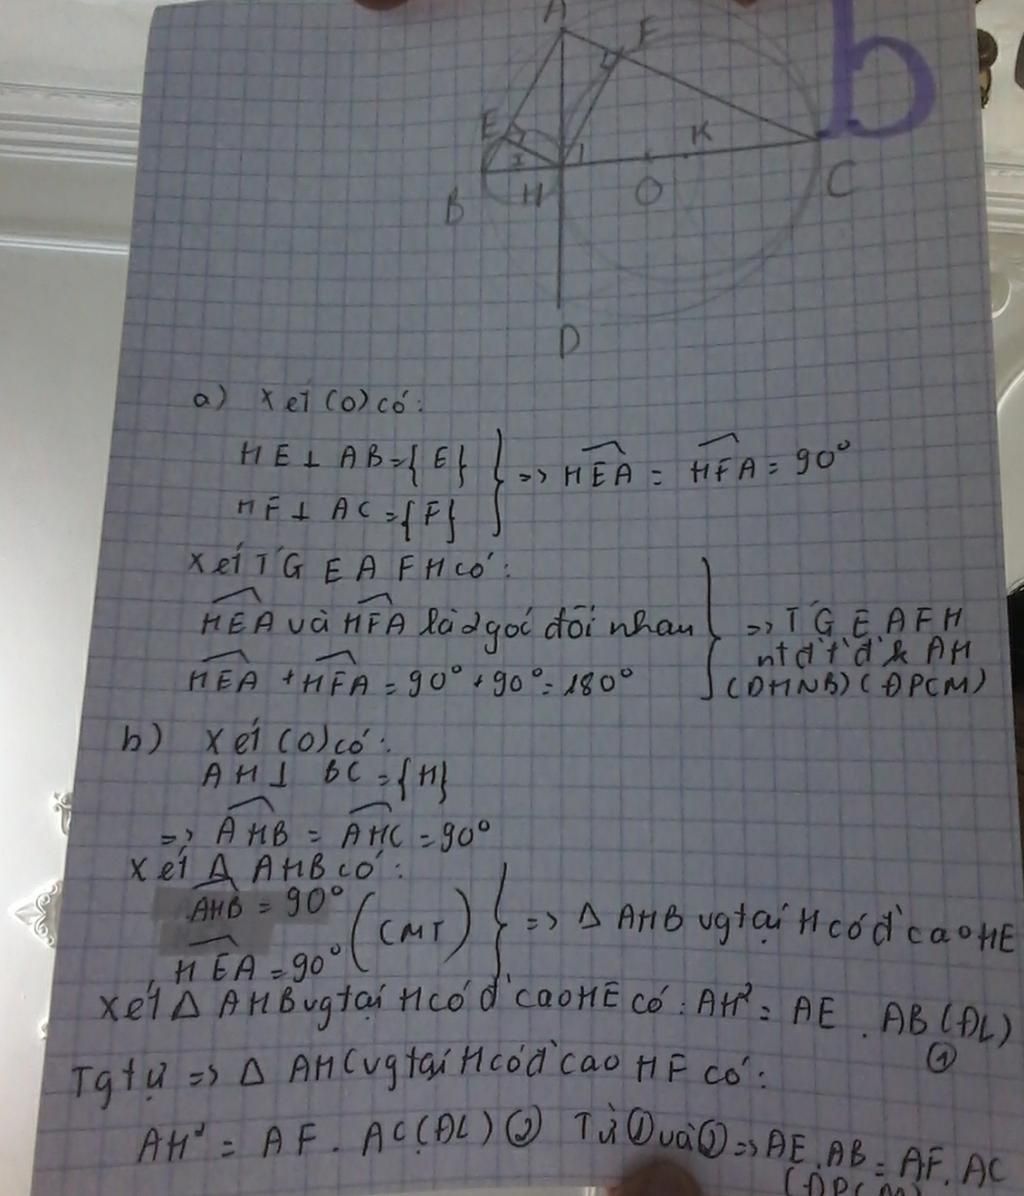 b
A
F
E
K
I
1
B
H
O
C
D
a) Xét (O) có:
HE ⊥ AB = {E}
HF ⊥ AC = {F}
=> HEA = HFA = 90°
Xét TG EAFH có:
HEA và HFA là 2 góc đối nhau
HEA + HFA = 90° + 90° = 180°
=> TG EAFH
nt đ't'đ'k AH
(DHNB) (ĐPCM)
b) Xét (O) có:
AH ⊥ BC = {H}
=> AHB = AHC = 90°
Xét Δ AHB có:
AHB = 90°
HEA = 90°
(CMT)
=> Δ AHB vgtại H có đ' cao HE
Xét Δ AHB vgtại H có đ' cao HE có: AH² = AE . AB (ĐL)
①
Tgtự => Δ AHC vgtại H có đ' cao HF có:
AH² = AF . AC (ĐL) ② Từ ① và ② => AE . AB = AF . AC
(ĐPCM)